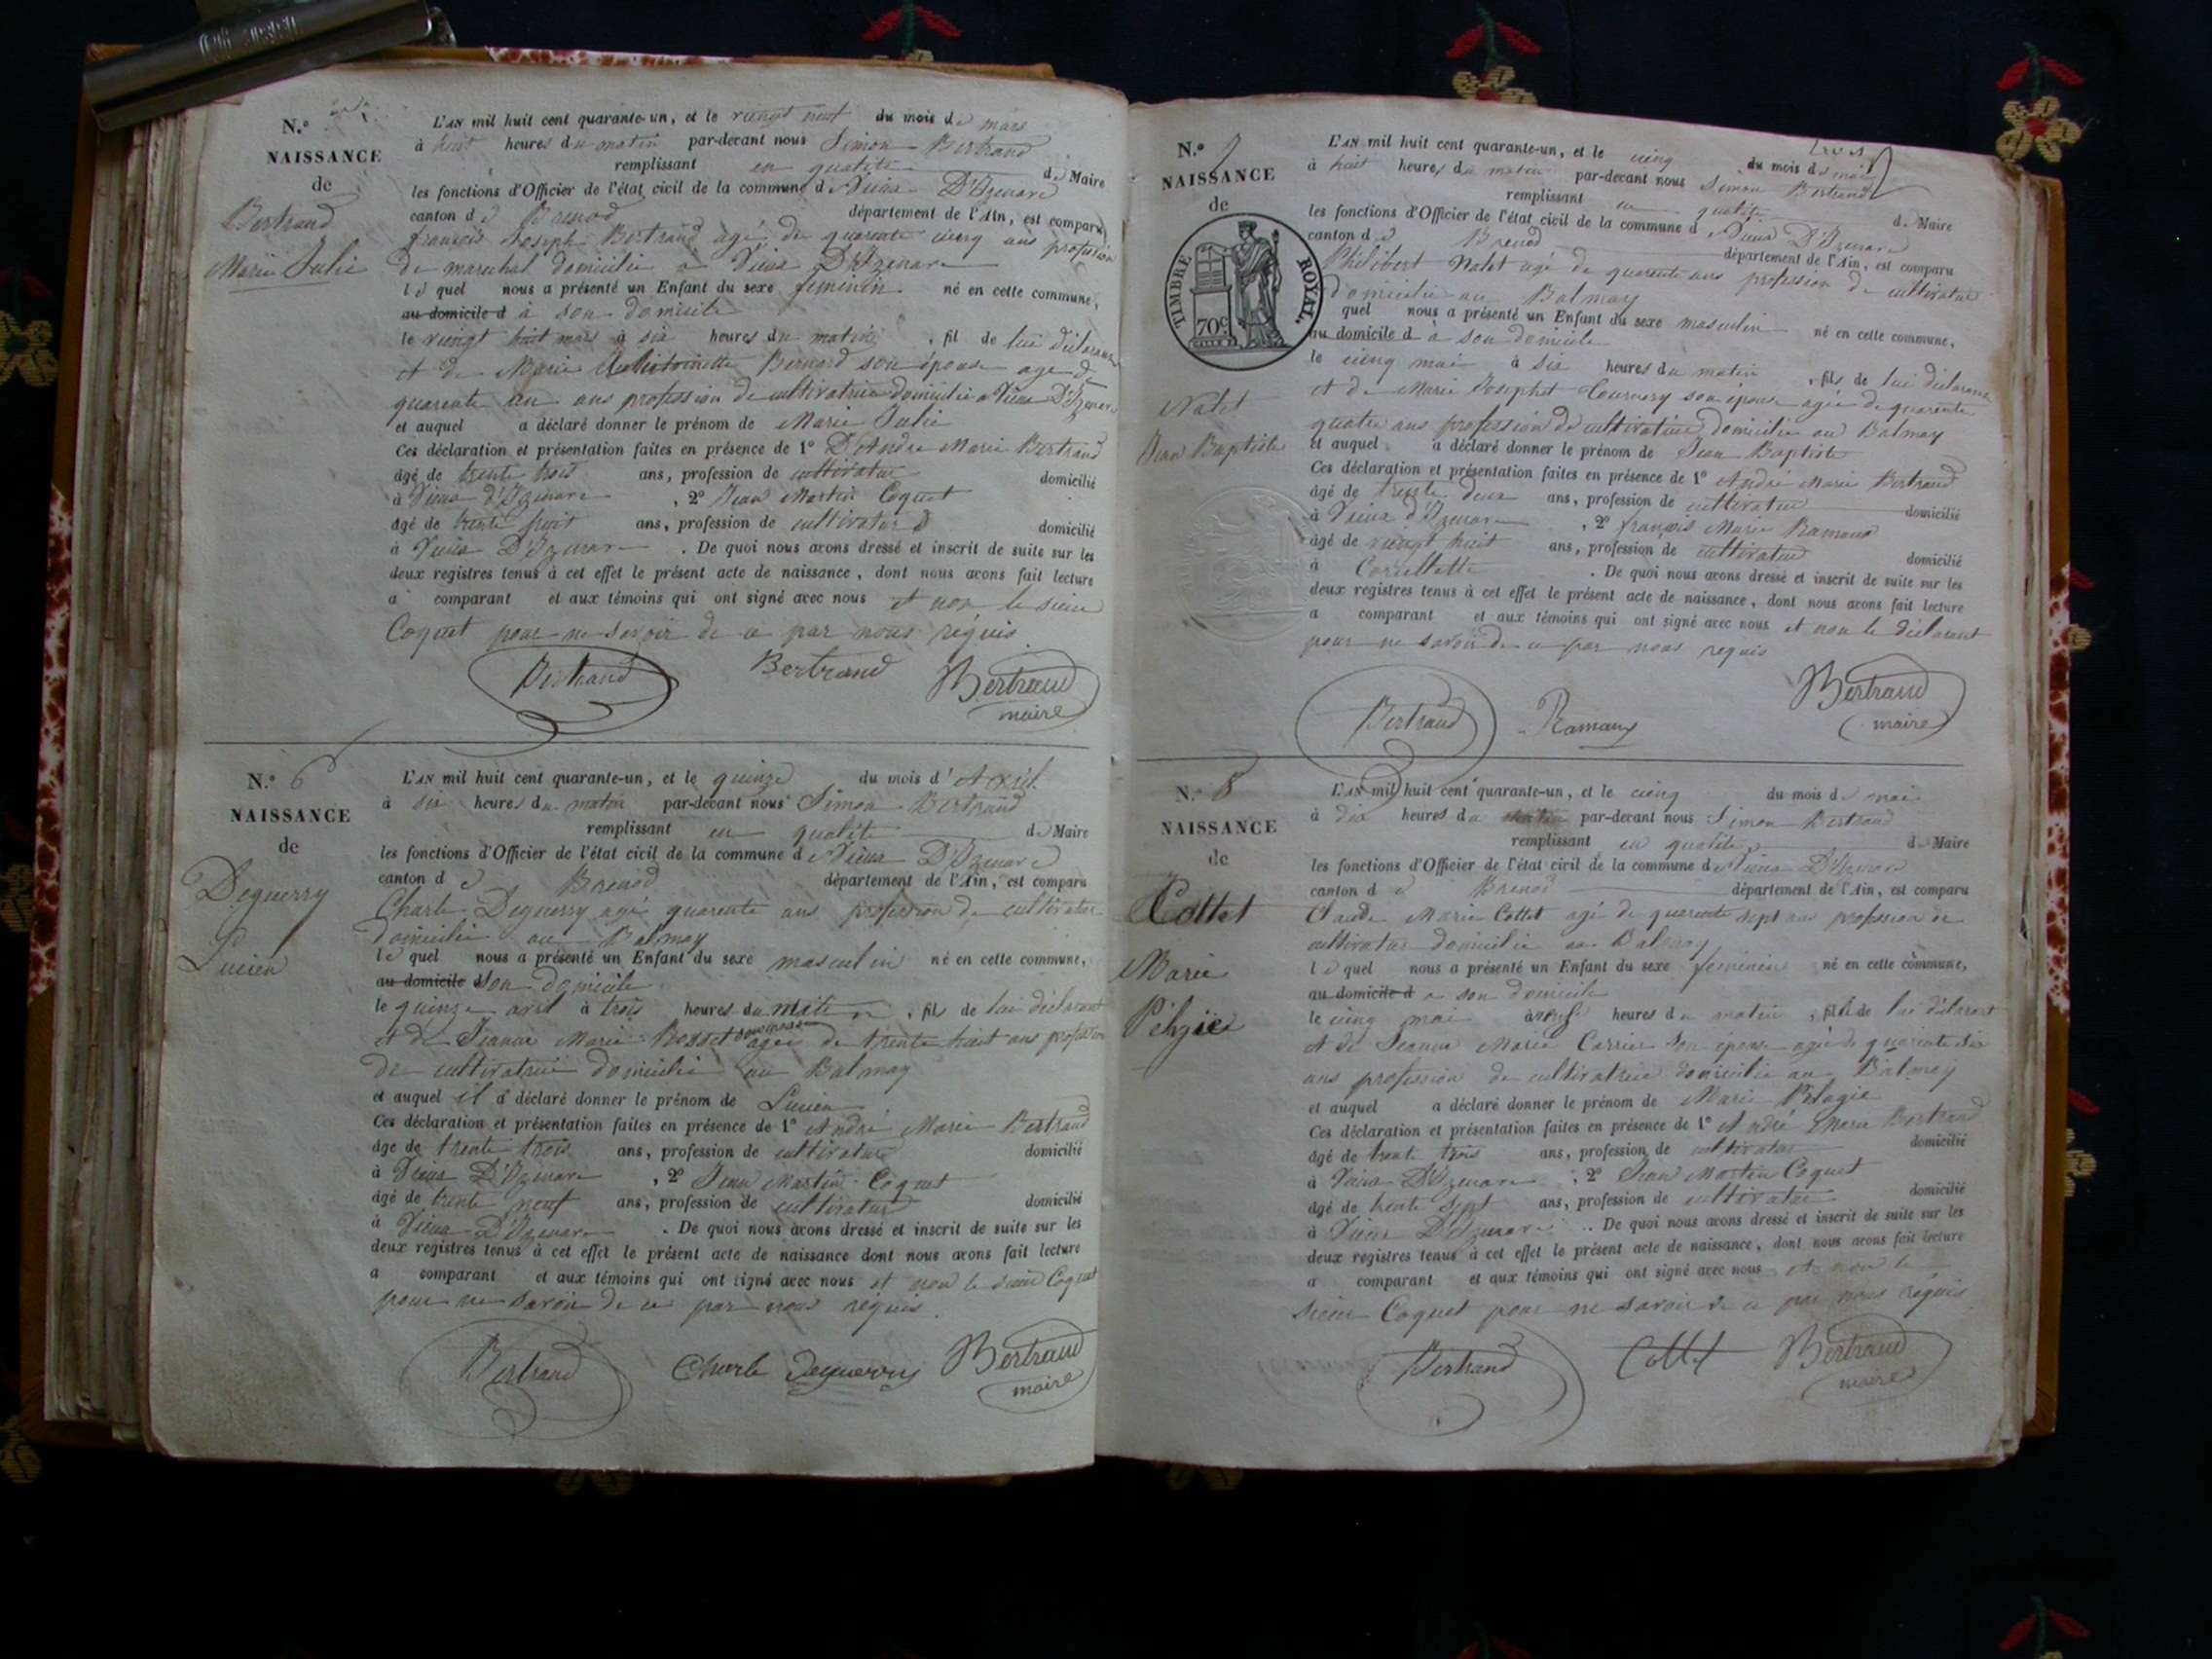 N.º
NAISSANCE
de
Bertrand
Marie Julie
L'AN mil huit cent quarante-un, et le vingt neuf du mois de mars
à huit heures du matin par-devant nous Simon Bertrand
remplissant en qualité de Maire
les fonctions d'Officier de l'état civil de la commune de Vieux D'Izenave
canton de Brenod département de l'Ain, est comparu
françois Joseph Bertrand agé de quarente cinq ans profession
de marechal domicilié a Vieux D'Izenave
le quel nous a présenté un Enfant du sexe feminin né en cette commune,
au domicile d à son domicile
le vingt huit mars à six heures du matin, fil de lui déclarant
et de Marie Anthoinette Bernard son épouse agé de
quarente un ans profession de cultivatrice domicilié a Vieux D'Izenave
et auquel a déclaré donner le prénom de Marie Julie
Ces déclaration et présentation faites en présence de 1º D'Andre Marie Bertrand
âgé de trente trois ans, profession de cultivateur domicilié
à Vieux d'Izenave, 2º Jean Martin Coquet
âgé de trente huit ans, profession de cultivateur domicilié
à Vieux D'Izenave. De quoi nous avons dressé et inscrit de suite sur les
deux registres tenus à cet effet le présent acte de naissance, dont nous avons fait lecture
a comparant et aux témoins qui ont signé avec nous et non le sieur
Coquet pour ne savoir de ce par nous réquis
Bertrand Bertrand Bertrand
maire
N.º 6
NAISSANCE
de
Deguerry
Lucien
L'AN mil huit cent quarante-un, et le quinze du mois d'Avril
à six heures du matin par-devant nous Simon Bertrand
remplissant en qualité de Maire
les fonctions d'Officier de l'état civil de la commune de Vieux D'Izenave
canton d e Brenod département de l'Ain, est comparu
Charle Deguerry agé quarente ans profession de cultivateur
domicilié au Balmay
le quel nous a présenté un Enfant du sexe masculin né en cette commune,
au domicile d son domicile
le quinze avril à trois heures du matin, fils de lui déclarant
et de Jeanne Marie Bosset son épouse agée de trente huit ans profession
de cultivatrice domicilié au Balmay
et auquel il a déclaré donner le prénom de Lucien
Ces déclaration et présentation faites en présence de 1º André Marie Bertrand
âgé de trente trois ans, profession de cultivateur domicilié
à Vieux D'Izenave, 2º Jean Martin Coquet
âgé de trente neuf ans, profession de cultivateur domicilié
à Vieux D'Izenave. De quoi nous avons dressé et inscrit de suite sur les
deux registres tenus à cet effet le présent acte de naissance dont nous avons fait lecture
a comparant et aux témoins qui ont signé avec nous et non le sieur Coquet
pour ne savoir de ce par nous réquis.
Bertrand Charle Deguerry Bertrand
maire
N.º 7
NAISSANCE
de
TIMBRE ROYAL.
70c
Nalet
Jean Baptiste
L'AN mil huit cent quarante-un, et le cinq du mois de mai
à huit heures du matin par-devant nous Simon Bertrand
remplissant en qualité de Maire
les fonctions d'Officier de l'état civil de la commune d Vieux D'Izenave
canton d e Brenod département de l'Ain, est comparu
Philibert Nalet agé de quarente ans profession de cultivateur
domicilié au Balmay
quel nous a présenté un Enfant du sexe masculin né en cette commune,
au domicile d à son domicile
le cinq mai à six heures du matin, fils de lui déclarant
et de Marie Josephet Tournery son épouse agée de quarente
quatre ans profession de cultivatrice domicilié au Balmay
et auquel a déclaré donner le prénom de Jean Baptiste
Ces déclaration et présentation faites en présence de 1º André Marie Bertrand
âgé de trente deux ans, profession de cultivateur domicilié
à Vieux d'Izenave, 2º françois Marie Ramaux
âgé de vingt huit ans, profession de cultivateur domicilié
à Corcellette. De quoi nous avons dressé et inscrit de suite sur les
deux registres tenus à cet effet le présent acte de naissance, dont nous avons fait lecture
a comparant et aux témoins qui ont signé avec nous et non le déclarant
pour ne savoir de ce par nous requis
Bertrand Ramaux Bertrand
maire
N.º 8
NAISSANCE
de
Cottet
Marie
Pélagie
L'AN mil huit cent quarante-un, et le cinq du mois de mai
à dix heures du matin par-devant nous Simon Bertrand
remplissant en qualité de Maire
les fonctions d'Officier de l'état civil de la commune de Vieux D'Izenave
canton d e Brenod département de l'Ain, est comparu
Claude Marie Cottet agé de quarente sept ans profession de
cultivateur domicilié au Balmay
le quel nous a présenté un Enfant du sexe feminin né en cette commune,
au domicile d a son domicile
le cinq mai à heures du matin, fille de lui déclarant
et de Jeanne Marie Carrier son épouse agée de quarente six
ans profession de cultivatrice domicilié au Balmay
et auquel a déclaré donner le prénom de Marie Pélagie
Ces déclaration et présentation faites en présence de 1º André Marie Bertrand
âgé de trente trois ans, profession de cultivateur domicilié
à Vieux D'Izenave, 2º Jean Martin Coquet
âgé de trente sept ans, profession de cultivateur domicilié
à Vieux D'Izenave. De quoi nous avons dressé et inscrit de suite sur les
deux registres tenus à cet effet le présent acte de naissance, dont nous avons fait lecture
a comparant et aux témoins qui ont signé avec nous et non le
sieur Coquet pour ne savoir de ce par nous réquis
Bertrand Cottet Bertrand
maire